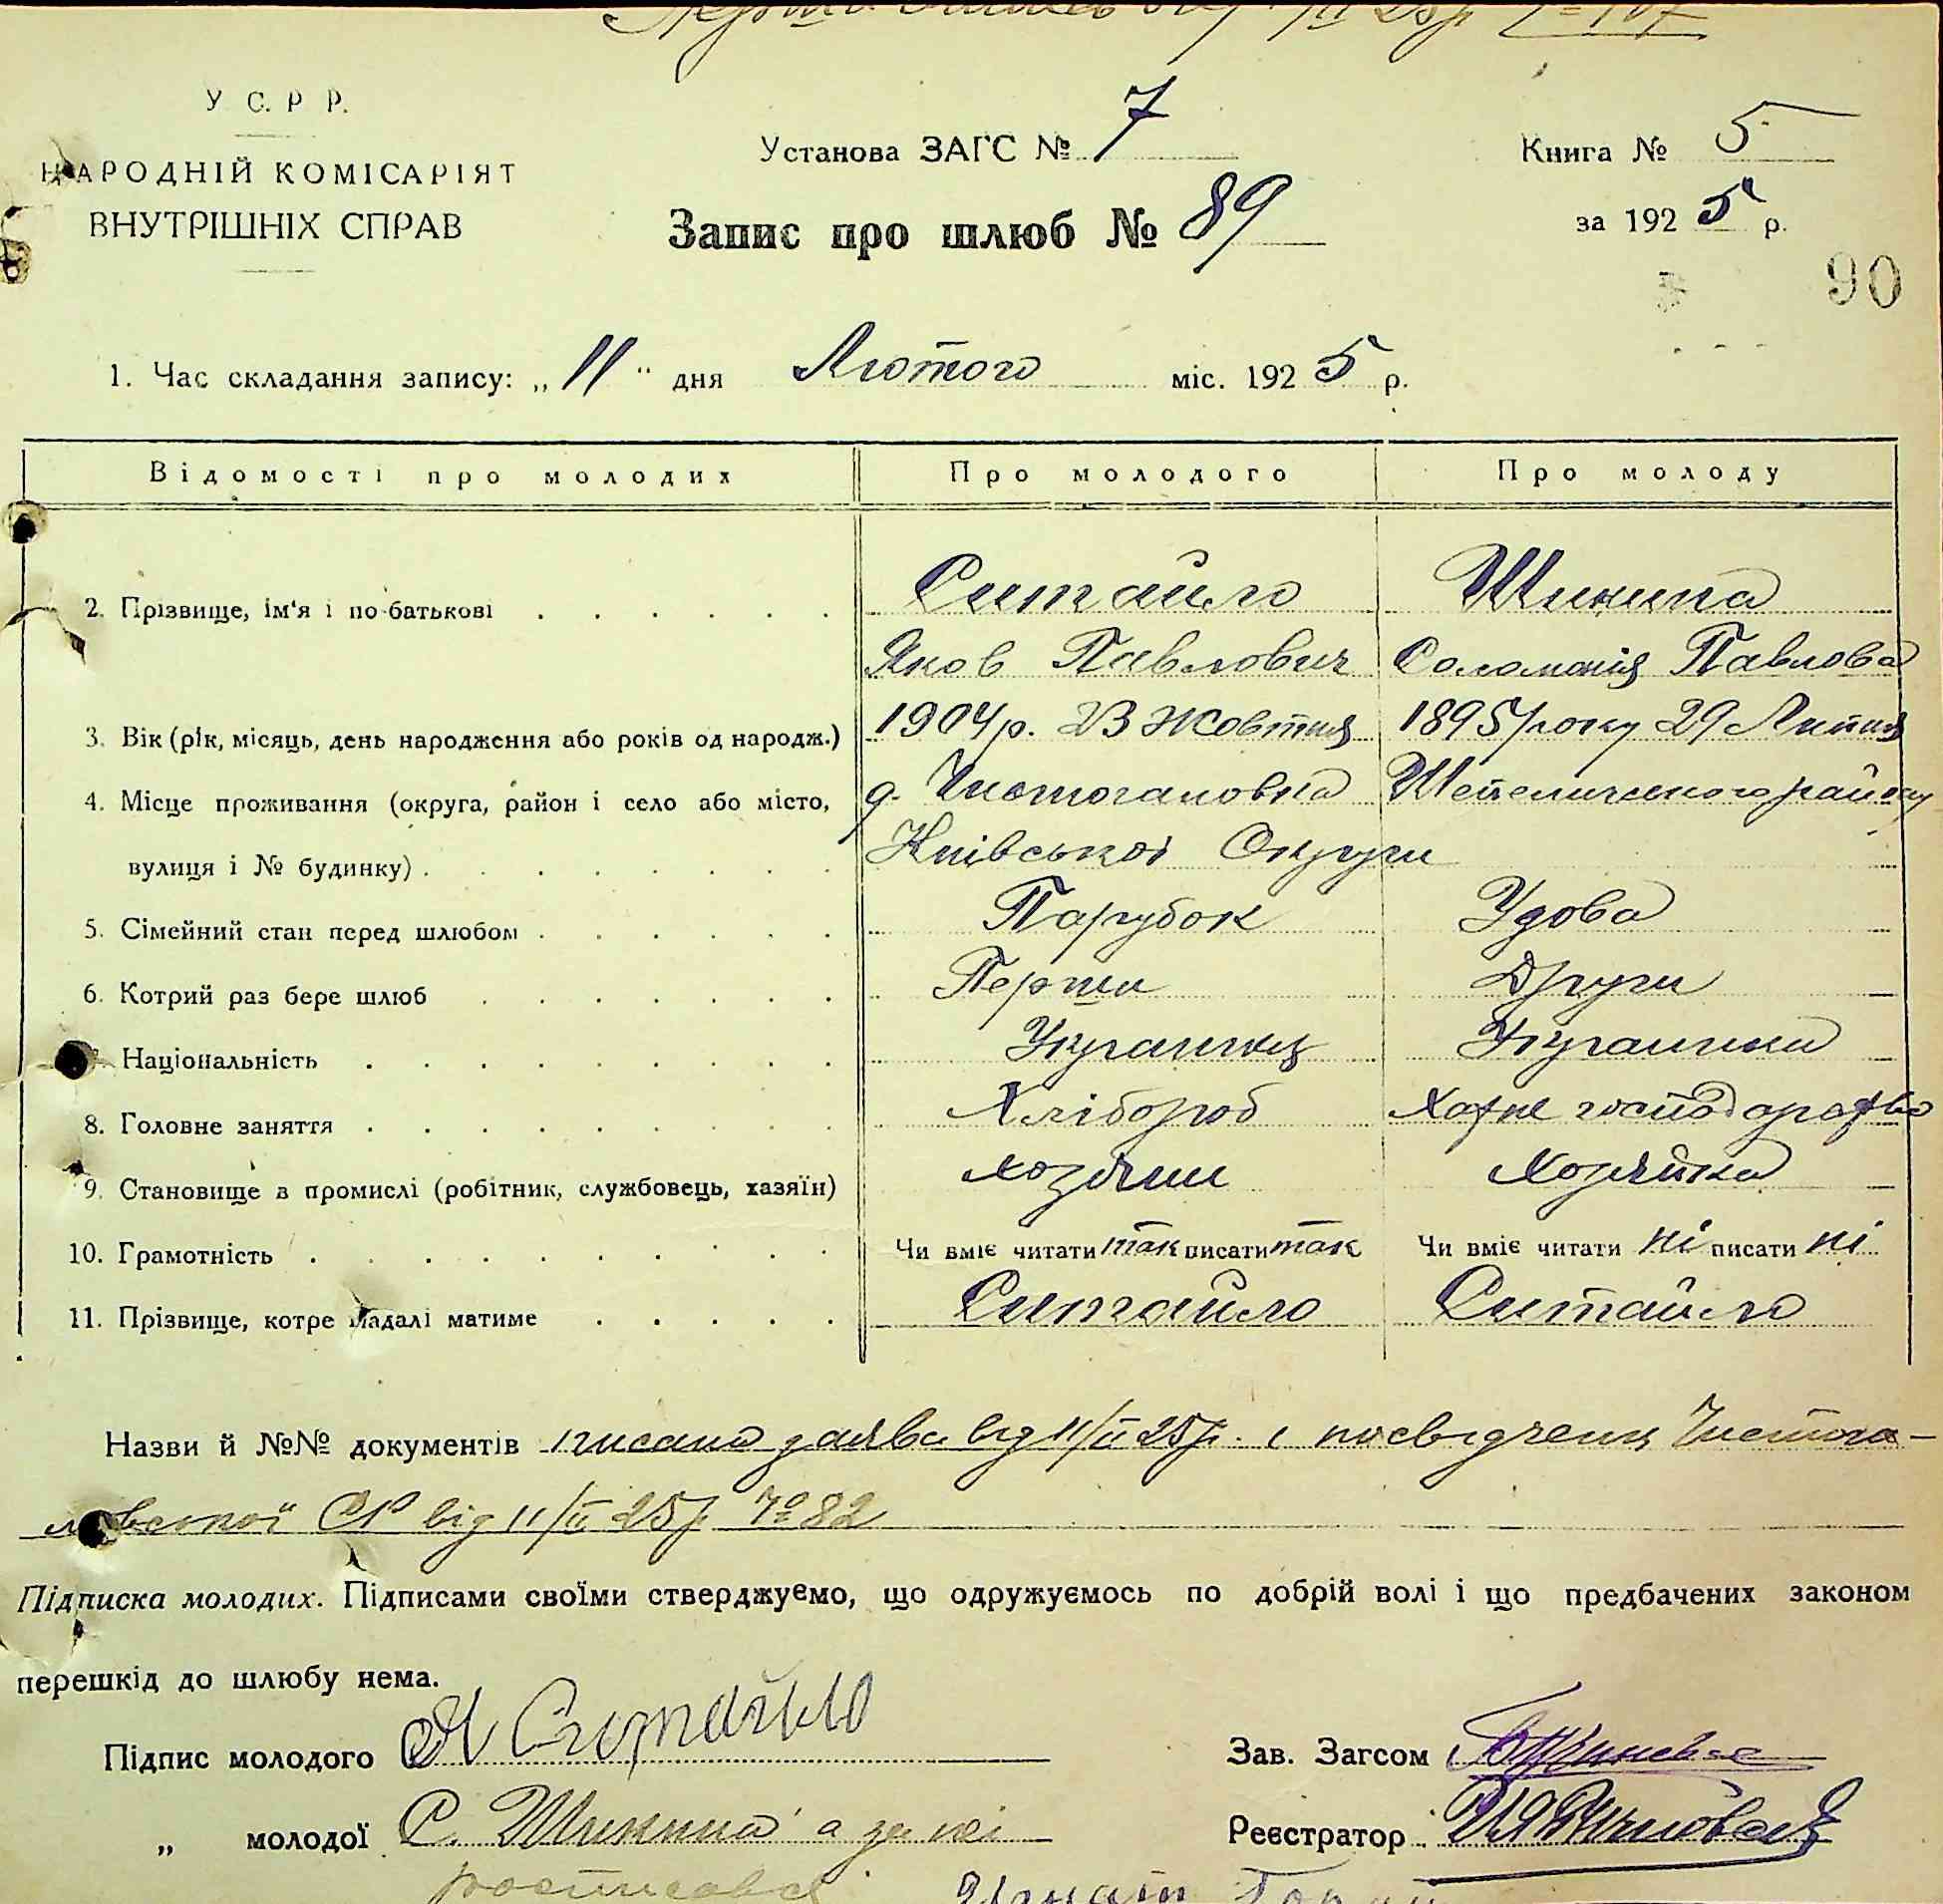 У. С. Р. Р.
НАРОДНІЙ КОМІСАРІЯТ
ВНУТРІШНІХ СПРАВ
Установа ЗАГС № 7
Запис про шлюб № 89
Книга № 5
за 1925 р.
90
1. Час складання запису: „11" дня Лютого міс. 1925 р.
Відомості про молодих Про молодого Про молоду
2. Прізвище, ім'я і по-батькові Ситайло Шикина
Яков Павлович Соломонія Павлова
3. Вік (рік, місяць, день народження або років од народж.) 1904 р. 23 Жовтня 1895 року 29 Липня
4. Місце проживання (округа, район і село або місто, д. Чистогаловка Шепелицького району
вулиця і № будинку) Київської Округи
5. Сімейний стан перед шлюбом Парубок Удова
6. Котрий раз бере шлюб Перши Други
Національність Украинец Украинка
8. Головне заняття Хлібороб Хатне господарство
9. Становище в промислі (робітник, службовець, хазяїн) хозяин Хозяйка
10. Грамотність Чи вміє читати так писати так Чи вміє читати ні писати ні
11. Прізвище, котре надалі матиме Ситайло Ситайло
Назви й №№ документів писана заява від 11/II 25 р. і посвідченя Чистога-
ловської СР від 11/II 25 р. № 82
Підписка молодих. Підписами своїми стверджуємо, що одружуємось по добрій волі і що предбачених законом
перешкід до шлюбу нема.
Підпис молодого Я Ситайло
Зав. Загсом
„ молодої С. Шикина а за неї
Реєстратор
росписався Игнат